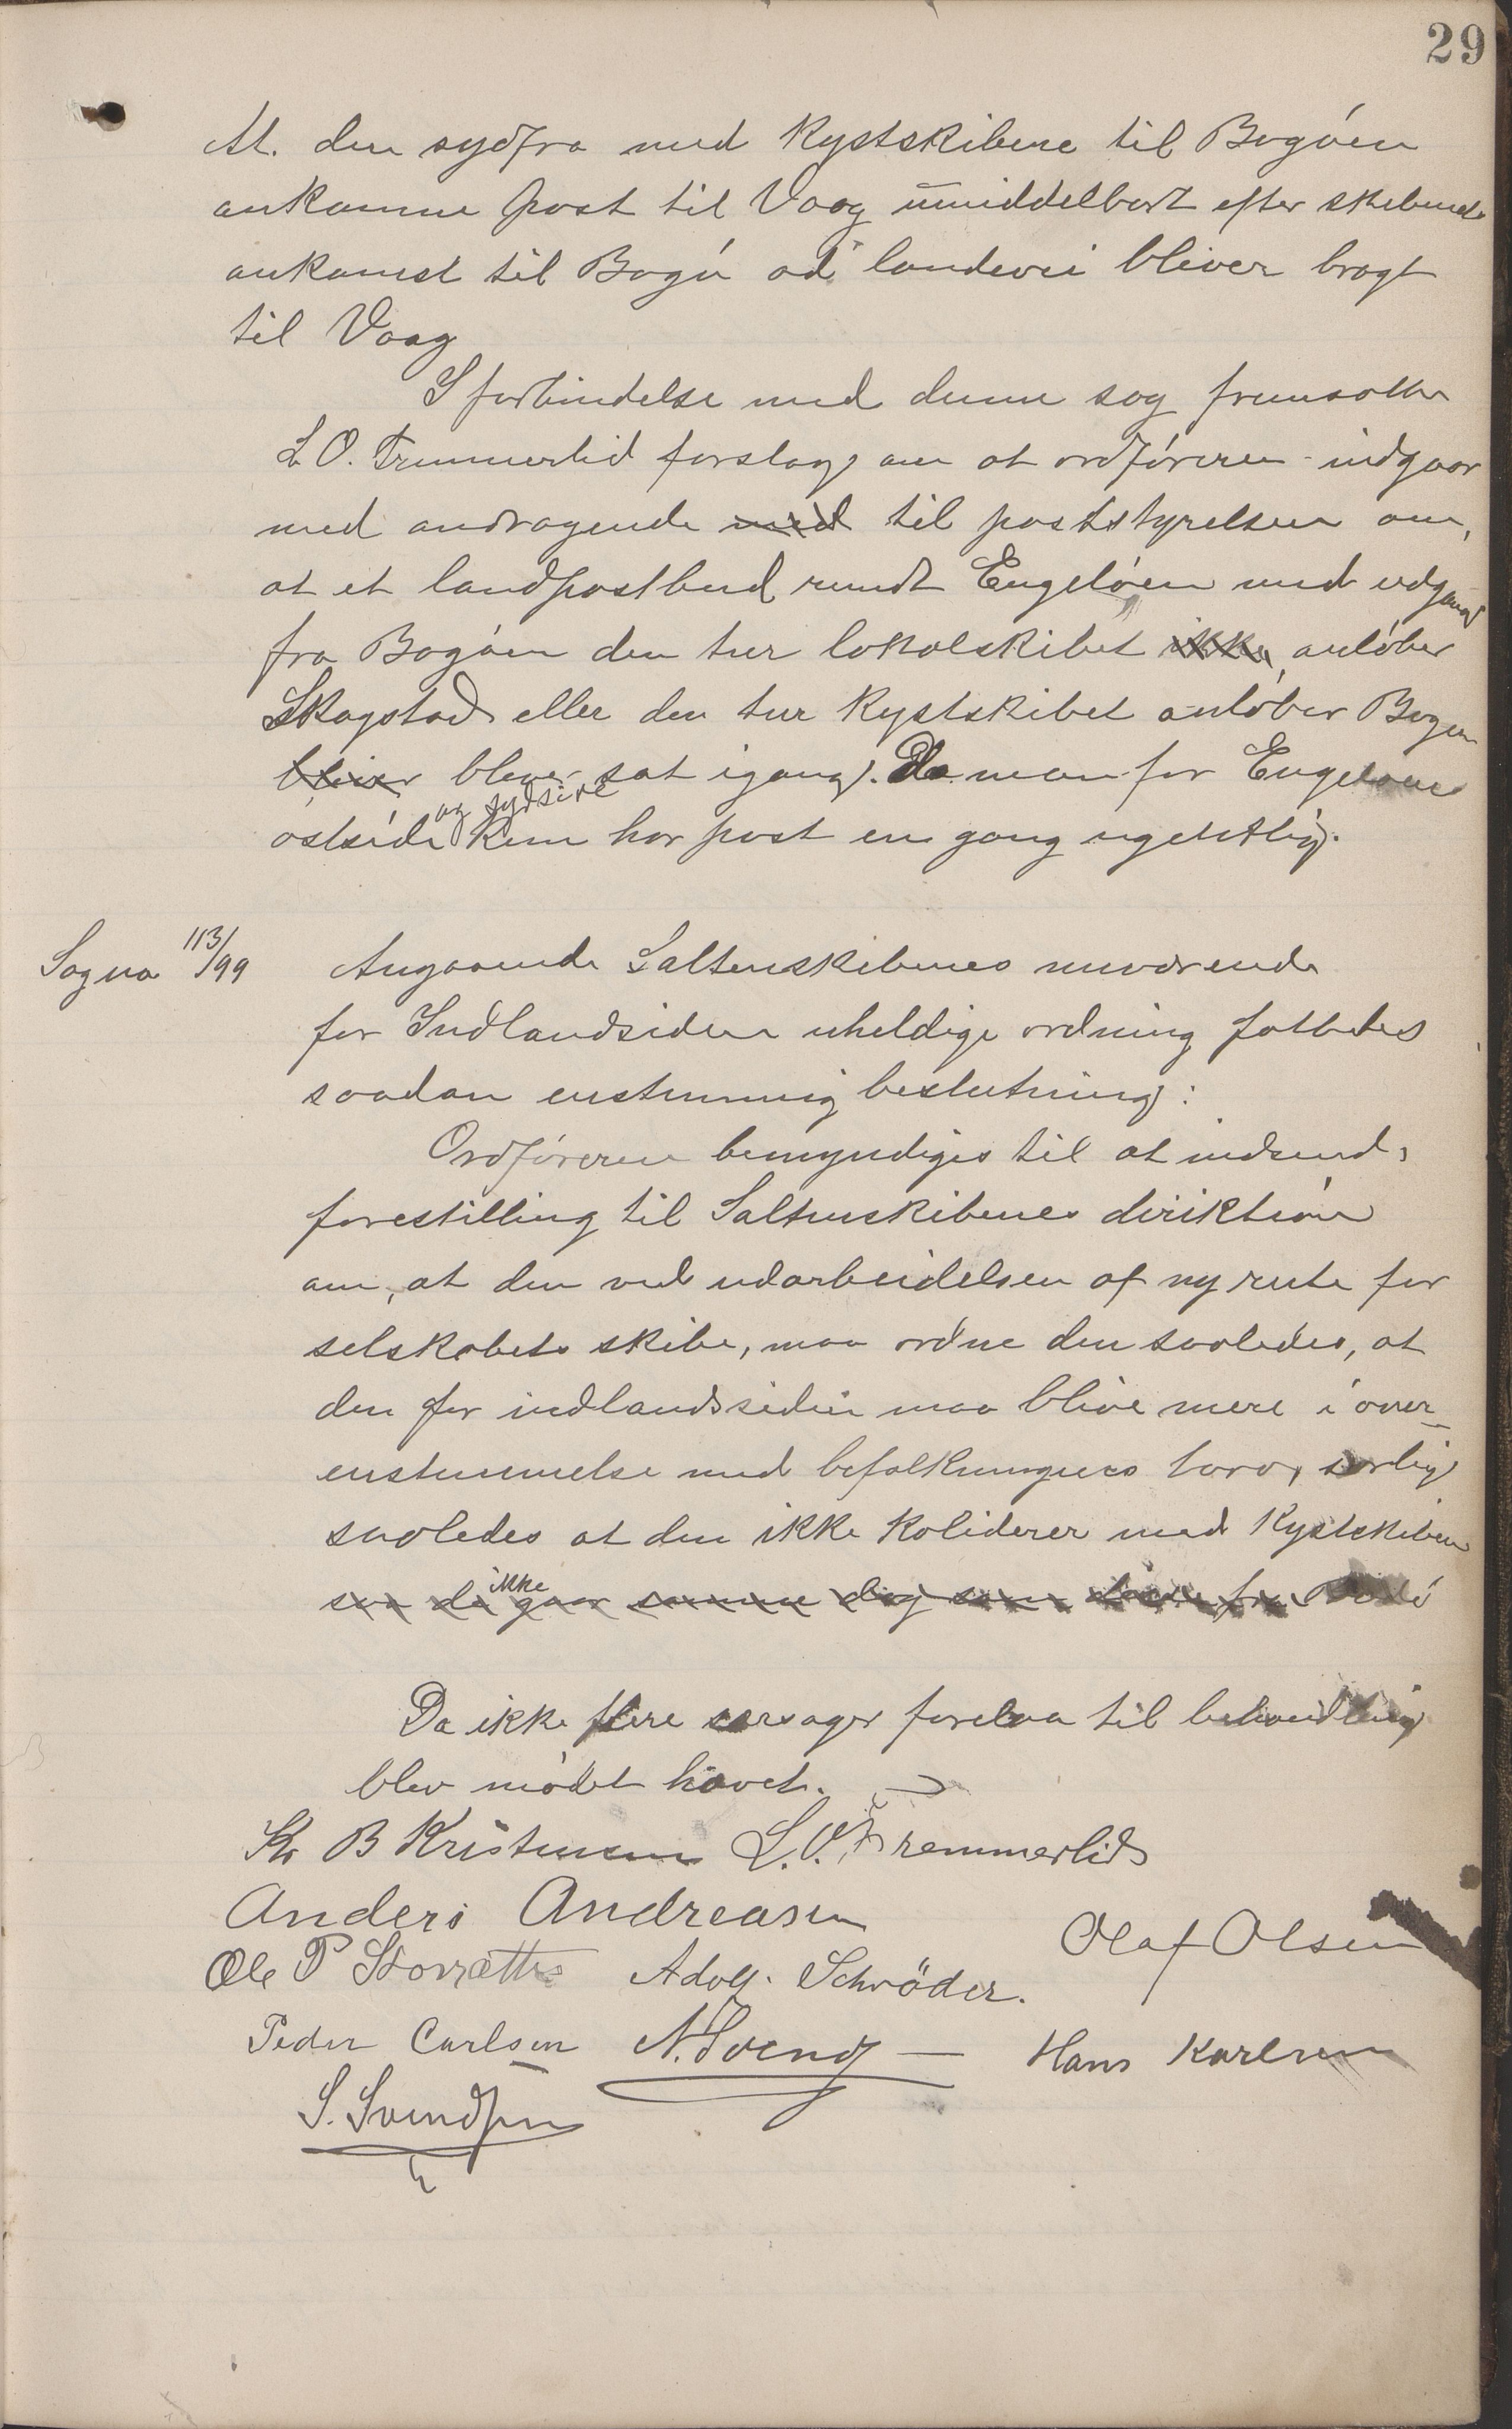 29
At. den sydfra med Kystskibene til Bogöen
ankomne post til Vaag umiddelbart efter skibenes
ankomst til Bogö ad landevei bliver bragt
til Vaag
I forbindelse med denne sag fremsatte
L O. Tremmerlid forslag om at ordföreren indgaar
med andragende med til poststyrelsen om,
at et landpostbud rundt Engelöen med udgang
fra Bogöen den tur lokalskibet ikke anlöber
Skagstad eller den tur Kystskibet anlöber Bogöen
bliver bliver sat igang. Da man for Engelöens
östside og sydside kun har post en gang ugentlig.
Sagna 113/99 Angaaende Saltenskibenes nuværende
for Indlandsiden uheldige ordning fattedes
saadan enstemmig beslutning:
Ordföreren bemyndiges til at indsende
forestilling til Saltenskibenes direktion
om, at den ved udarbeidelsen af ny rute for
selskabets skibe, maa ordne den saaledes, at
den for indlandssiden maa blive mere i over-
enstemmelse med befolkningens tarv, særlig
saaledes at den ikke koliderer med Kystskibene
saa de ikke gaar samme dag som disse fra Bodö
Da ikke flere sager forelaa til behandling
blev mödet hævet.
Kr B Kristensen L. O. Tremmerlid
Anders Andreasen Olaf Olsen
Ole P Storrætte Adolf Schröder.
Peder Carlsen Hans Karlsen
S. Svendsen